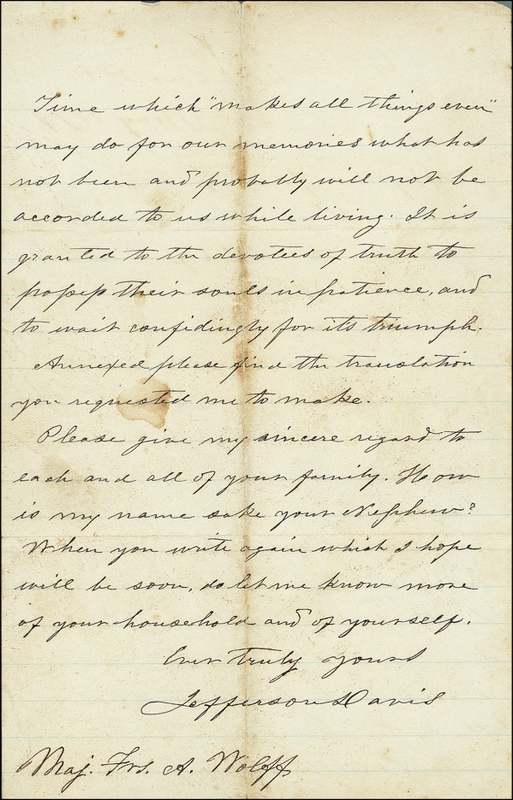 Time which "makes all things even"
may do for our memories what has
not been and probably will not be
accorded to us while living. It is
granted to the devotees of truth to
possess their souls in patience, and
to wait confidingly for its triumph.
Annexed please find the translation
you requested me to make.
Please give my sincere regard to
each and all of your family. How
is my name sake your Nephew?
When you write again which I hope
will be soon, do let me know more
of your household and of yourself.
Ever truly yours
Jefferson Davis
Maj. Frs. A. Wolff